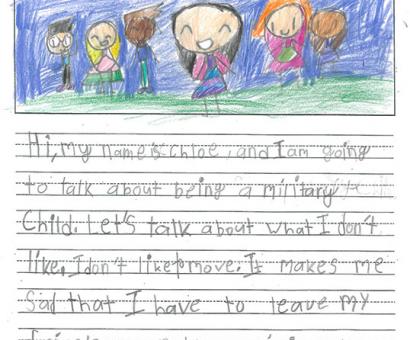 Hi, my name is Chloe, and I am going
to talk about being a military
Child. Let's talk about what I don't
like. I don't like move. It makes me
sad that I have to leave my